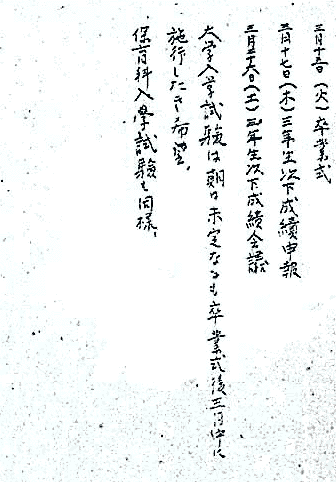 三月十五日(火)卒業式
三月十七日(木)三年生次下成績申報
三月二十六日(土)三年生次下成績会議
大学入学試験は期日未定なるも卒業式後三月中に
施行したき希望、
保育科入學試験も同様、